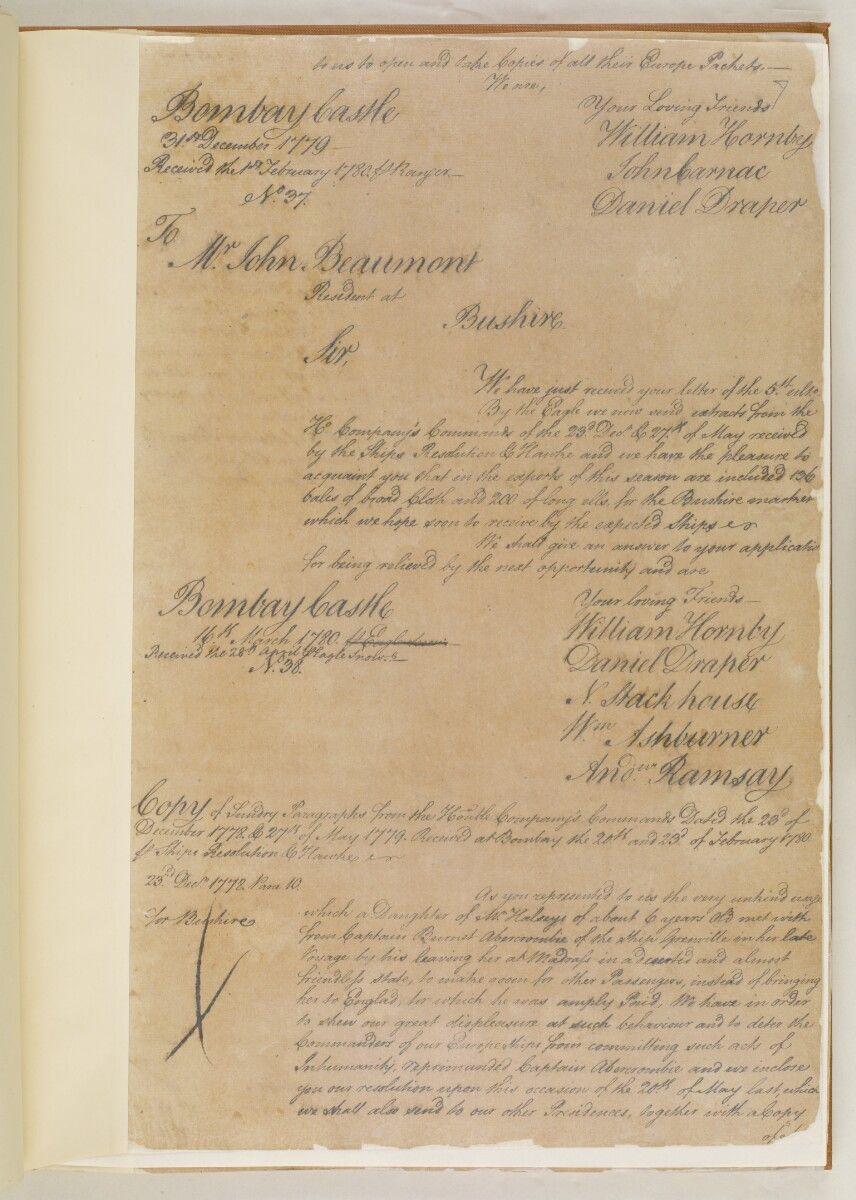 to us to open and take Copies of all their Europe Packets.—
We are,
Your Loving Friends
Bombay Castle
31st December 1779
Received the 1st February 1780 Ranger—
No. 37.
William Hornby
John Carnac
Daniel Draper
To
Mr. John Beaumont
Resident at
Bushire
Sir,
We have just received your letter of the 5th ulto.
By the Eagle we now send extracts from the
Company's Commands of the 23d Decr. & 27th of May received
by the Ships Resolution & Hawke and we have the pleasure to
acquaint you that in the exports of this season are included 136
bales of broad Cloth and 200 of long ells, for the Bushire market
which we hope soon to receive by the expected Ships
We shall give an answer to your applicatio
for being relieved by the next opportunity and are
Your loving Friends—
Bombay Castle
16th March 1780.
Received the 28th April Eagle Snow
No. 38.
William Hornby
Daniel Draper
N. Stackhouse
Wm. Ashburner
Andw. Ramsay
Copy of Sundry Paragraphs from the Honble Company's Commands Dated the 23d of
December 1778 & 27th of May 1779. Received at Bombay the 20th and 23d of February 1780
Ships Resolution & Hawke
23d Decr. 1778 Para 10.
for Bushire
As you represented to us the very unkind usage
which a Daughter of Mr. Halseys of about 6 years Old met with
from Captain Burnet Abercrombie of the Ship Grenville in her late
Voyage by his leaving her at Madrass in a deserted and almost
friendless state, to make room for other Passengers, instead of bringing
her to Englad, for which he was amply Paid, We have in order
to shew our great displeasure at such behaviour and to deter the
Commanders of our Europe Ships from committing such acts of
Inhumanity, reprimanded Captain Abercrombie and we inclose
you our resolution upon this occasion of the 20th of May last, which
we shall also send to our other Presidences, together with a Copy
of